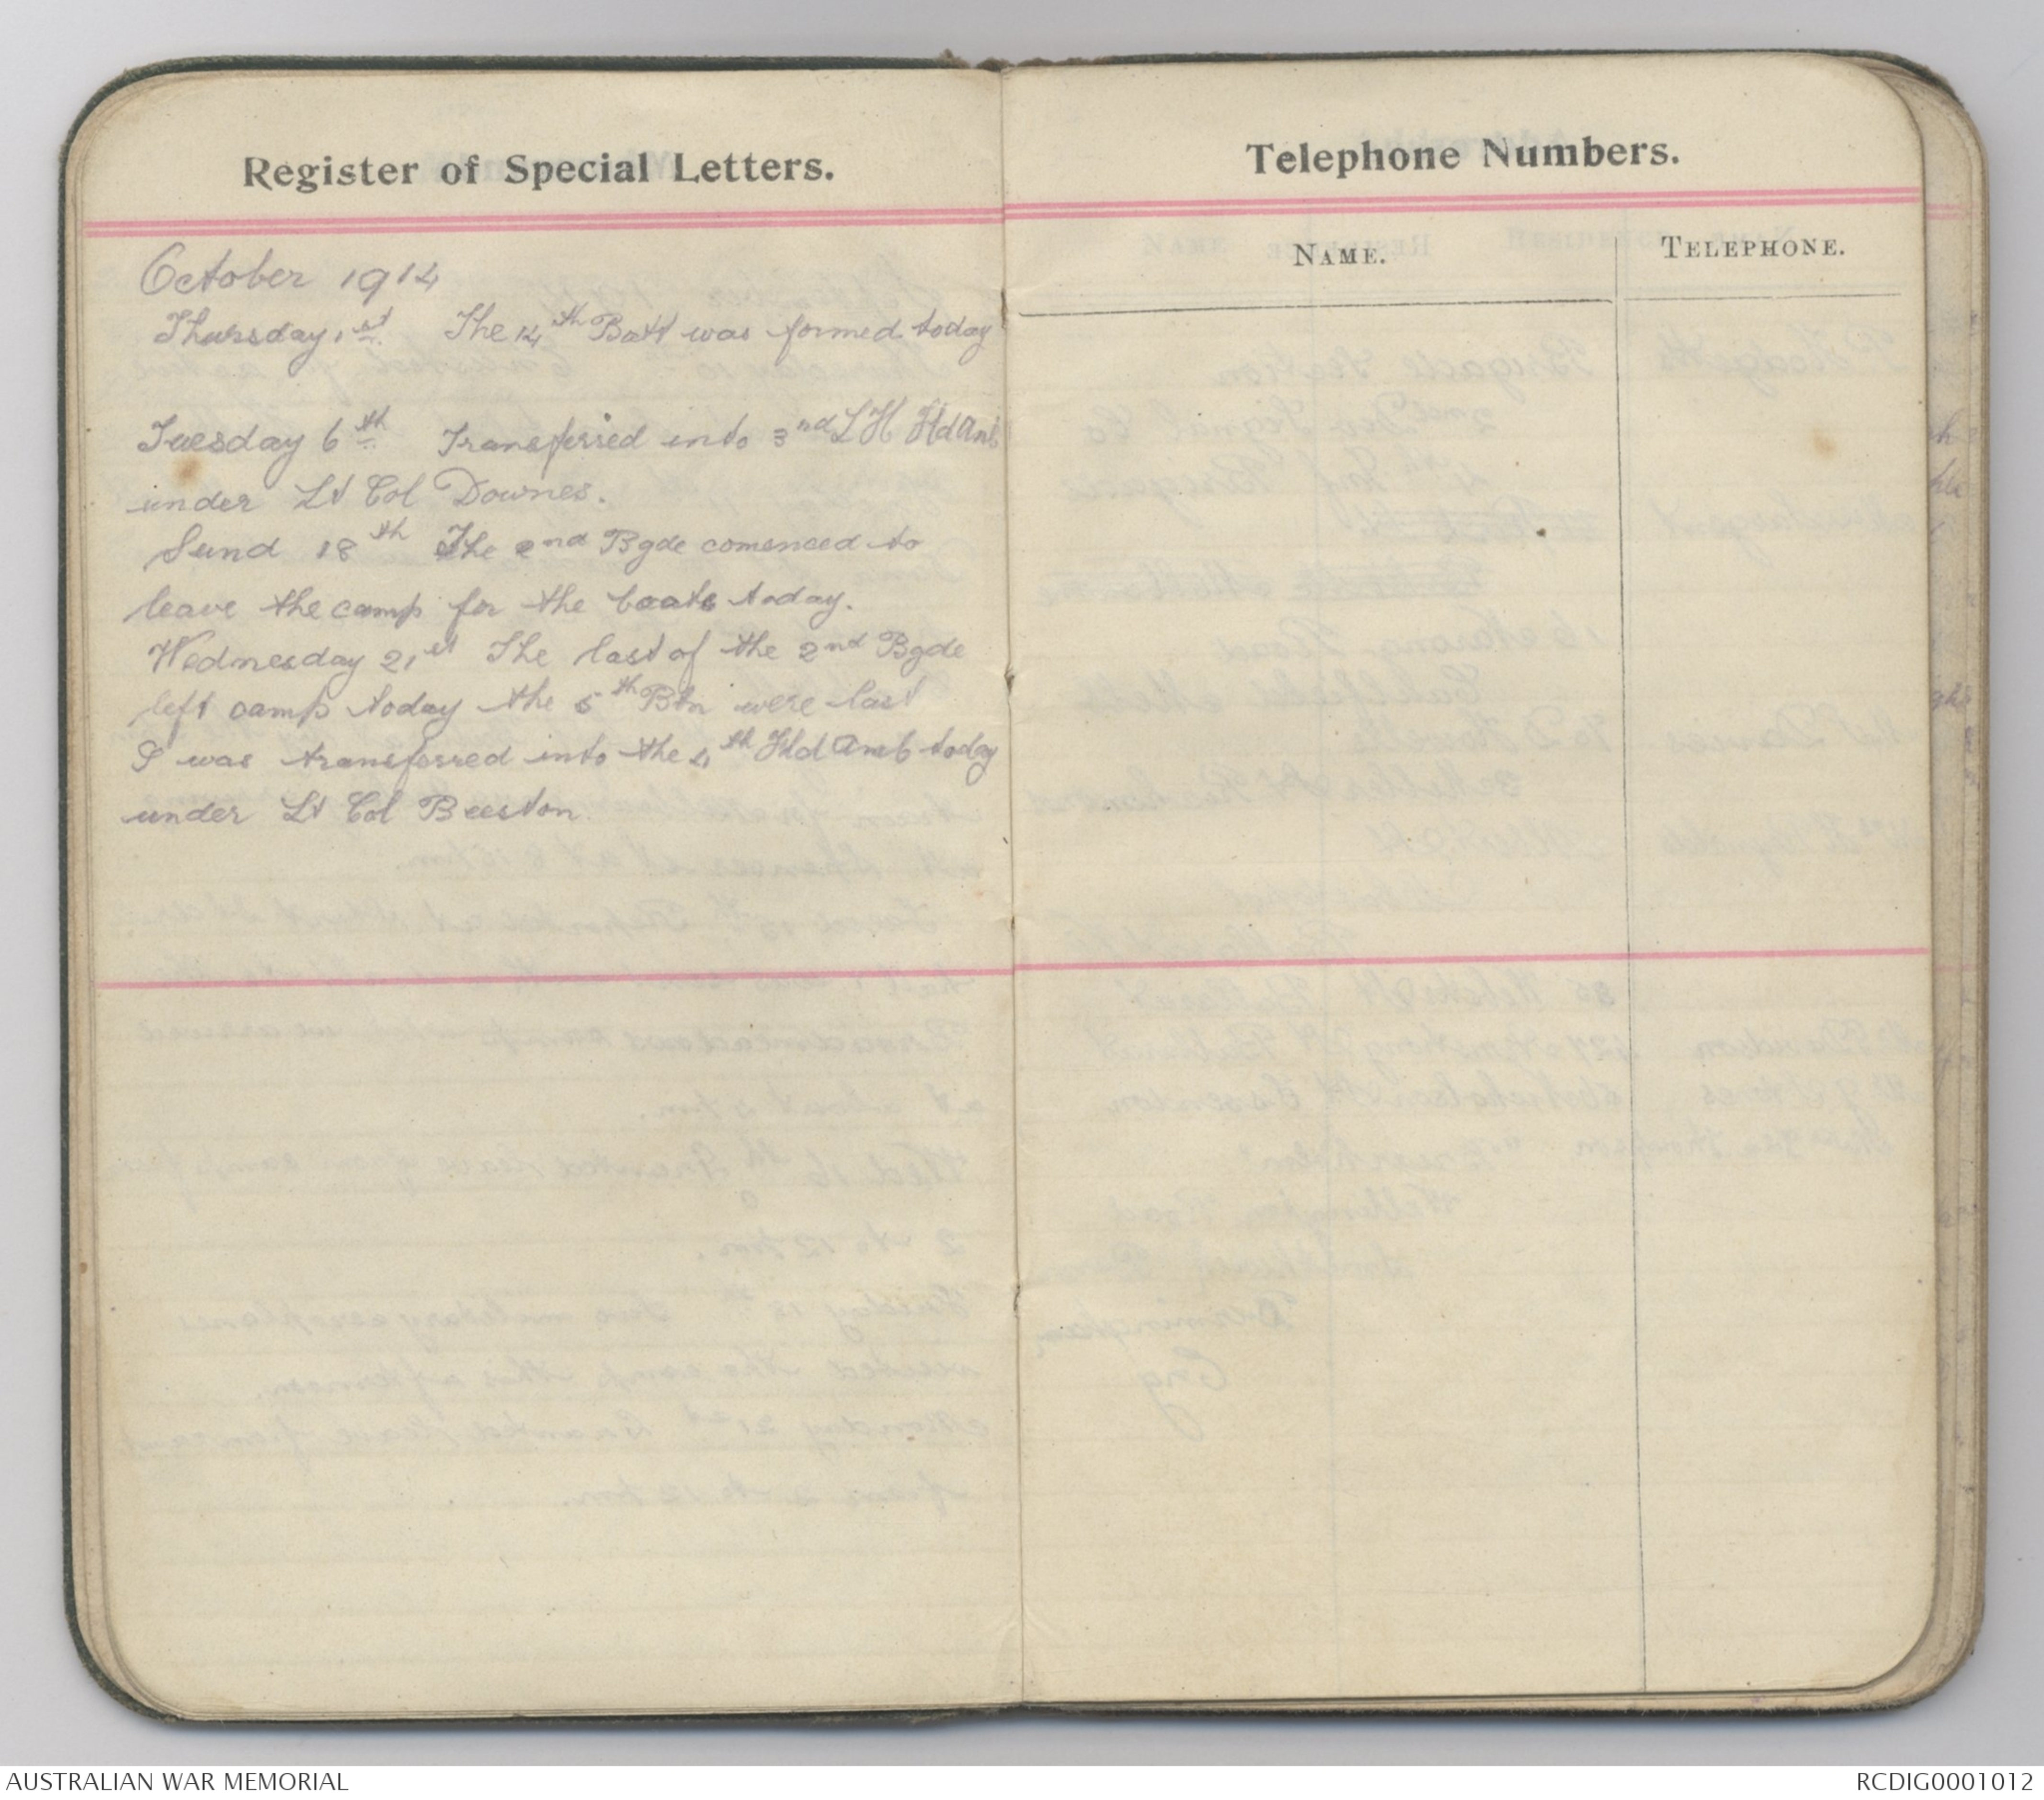 Register of Special Letters.
October 1914
Thursday 1st. The 14th Batt was formed today
Tuesday 6th Transferred into 3nd LH Fld Amb
under Lt Col Downes.
Sund 18th The 2nd Bgde comenced to
leave the camp for the boats today.
Wednesday 21st The last of the 2nd Bgde
left camp today the 5th Btn were last
I was transferred into the 4th Fld Amb today
under Lt Col Beeston.
Telephone Numbers.
NAME. TELEPHONE.
AUSTRALIAN WAR MEMORIAL
RCDIG0001012